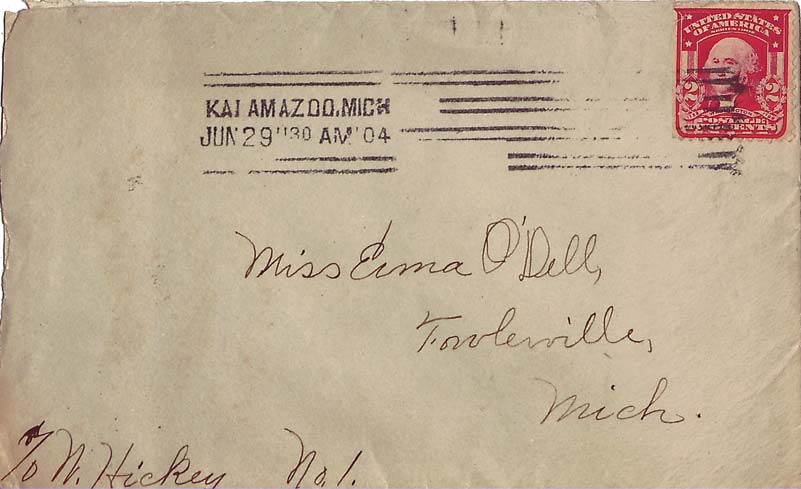 UNITED STATES
OF AMERICA
2 2
POSTAGE
TWO CENTS
KALAMAZOO, MICH
JUN 29 1130 AM '04
Miss Erma O'Dell,
Fowlerville,
Mich.
c/o N. Hickey No. 1.